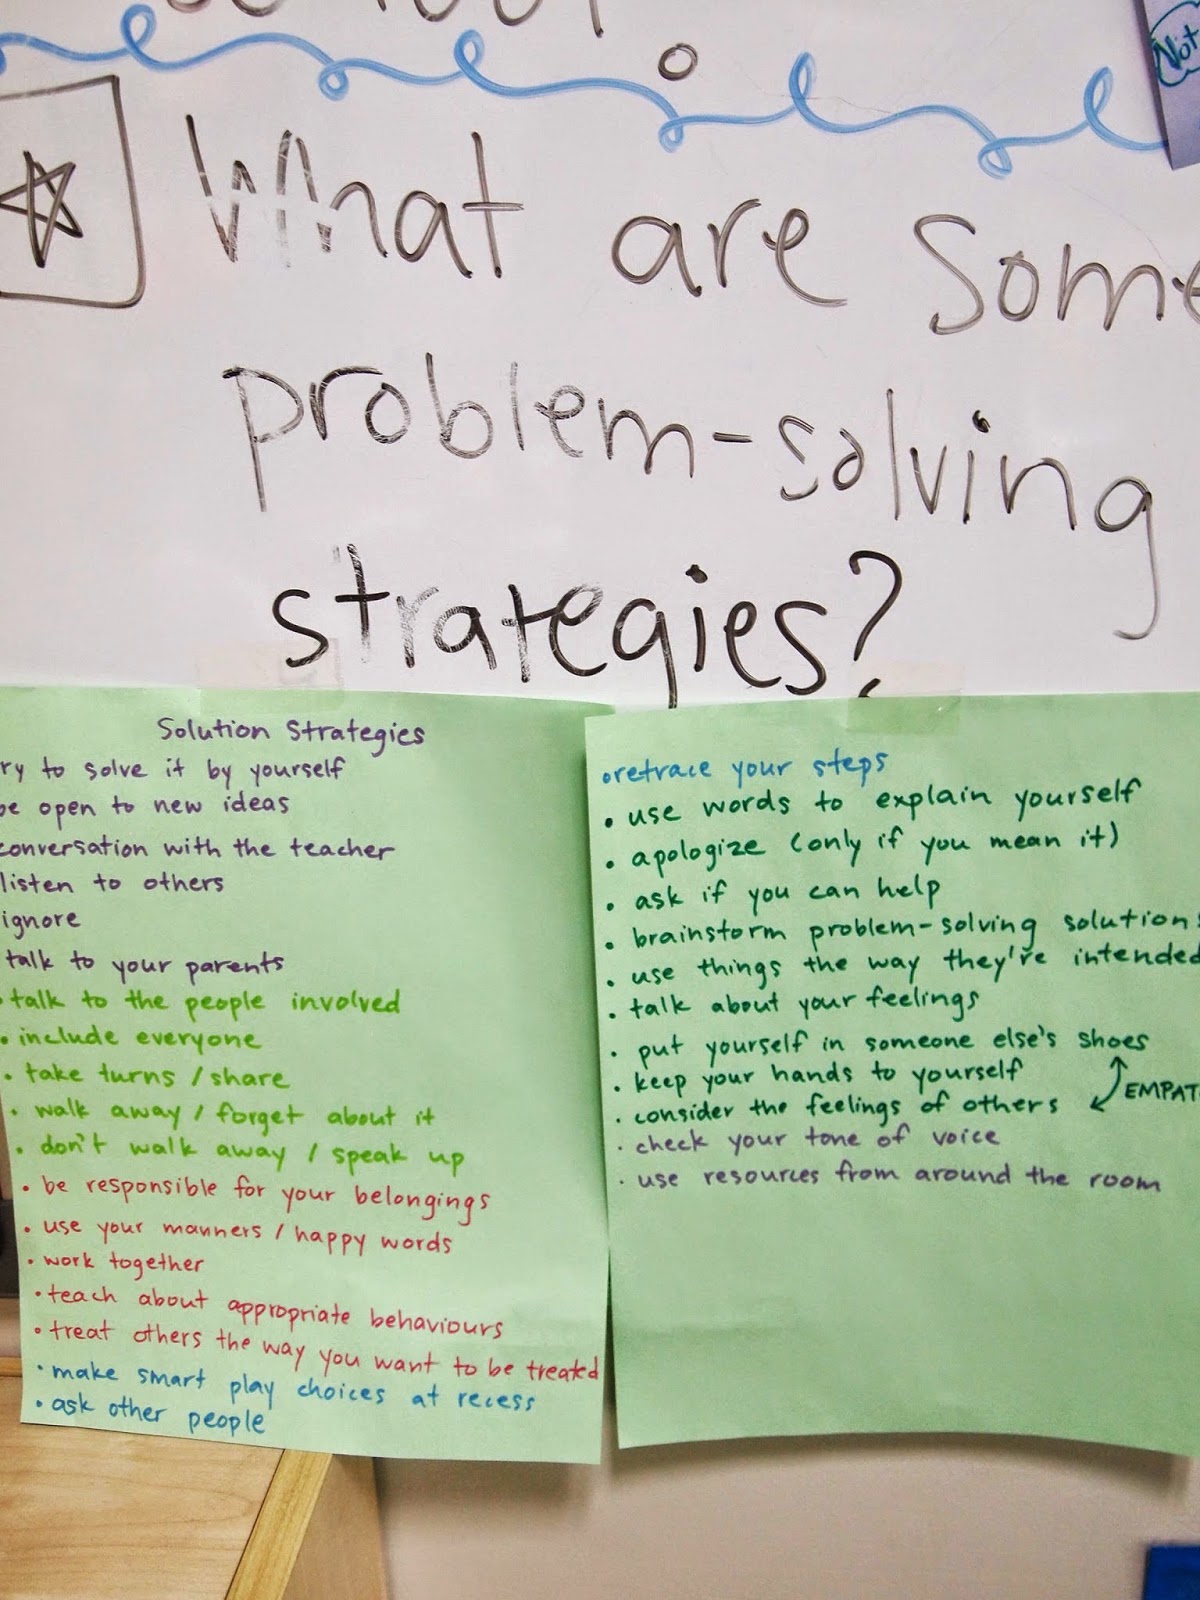 Not
What are some
problem-solving
strategies?
Solution Strategies
ry to solve it by yourself
be open to new ideas
conversation with the teacher
listen to others
ignore
talk to your parents
• talk to the people involved
• include everyone
• take turns / share
• walk away / forget about it
• don't walk away / speak up
• be responsible for your belongings
• use your manners / happy words
• work together
• teach about appropriate behaviours
• treat others the way you want to be treated
• make smart play choices at recess
• ask other people
• retrace your steps
• use words to explain yourself
• apologize (only if you mean it)
• ask if you can help
• brainstorm problem-solving solutions
• use things the way they're intended
• talk about your feelings
• put yourself in someone else's shoes
• keep your hands to yourself
EMPAT
• consider the feelings of others
• check your tone of voice
• use resources from around the room